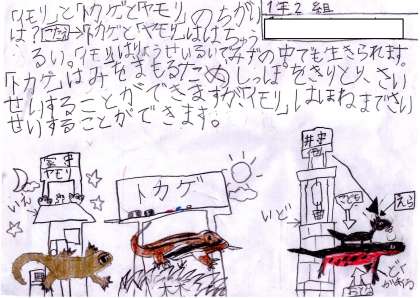 「イモリ」と「トカゲとヤモリ」のちがい
1年2組
は？こたえ→「トカゲ」と「ヤモリ」ははちゅう
るい。「イモリ」はりょうせいるいでみずの中でも生きられます。
「トカゲ」はみをまもるためしっぽをきりとり、さい
せいすることができますが、「イモリ」はほねまでさい
せいすることができます。
家守
ヤモリ
いえ
トカゲ
井守
いど
こども
えら
おとな
どく